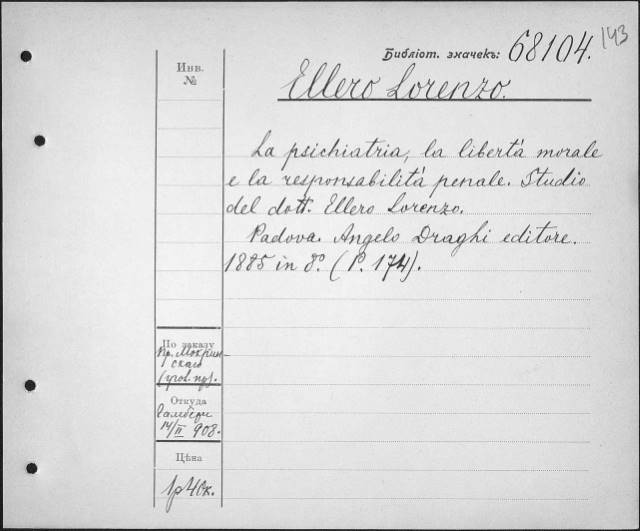 Библіот. значекъ: 68104. 143
Инв.
№
Ellero Lorenzo.
La psichiatria, la libertà morale
e la responsabilità penale. Studio
del dott. Ellero Lorenzo.
Padova. Angelo Draghi editore.
1885 in 8.° (P. 174).
По заказу
Пр. Мокрин-
скаго
Откуда
14/II 908.
Цѣна
1р 40к.